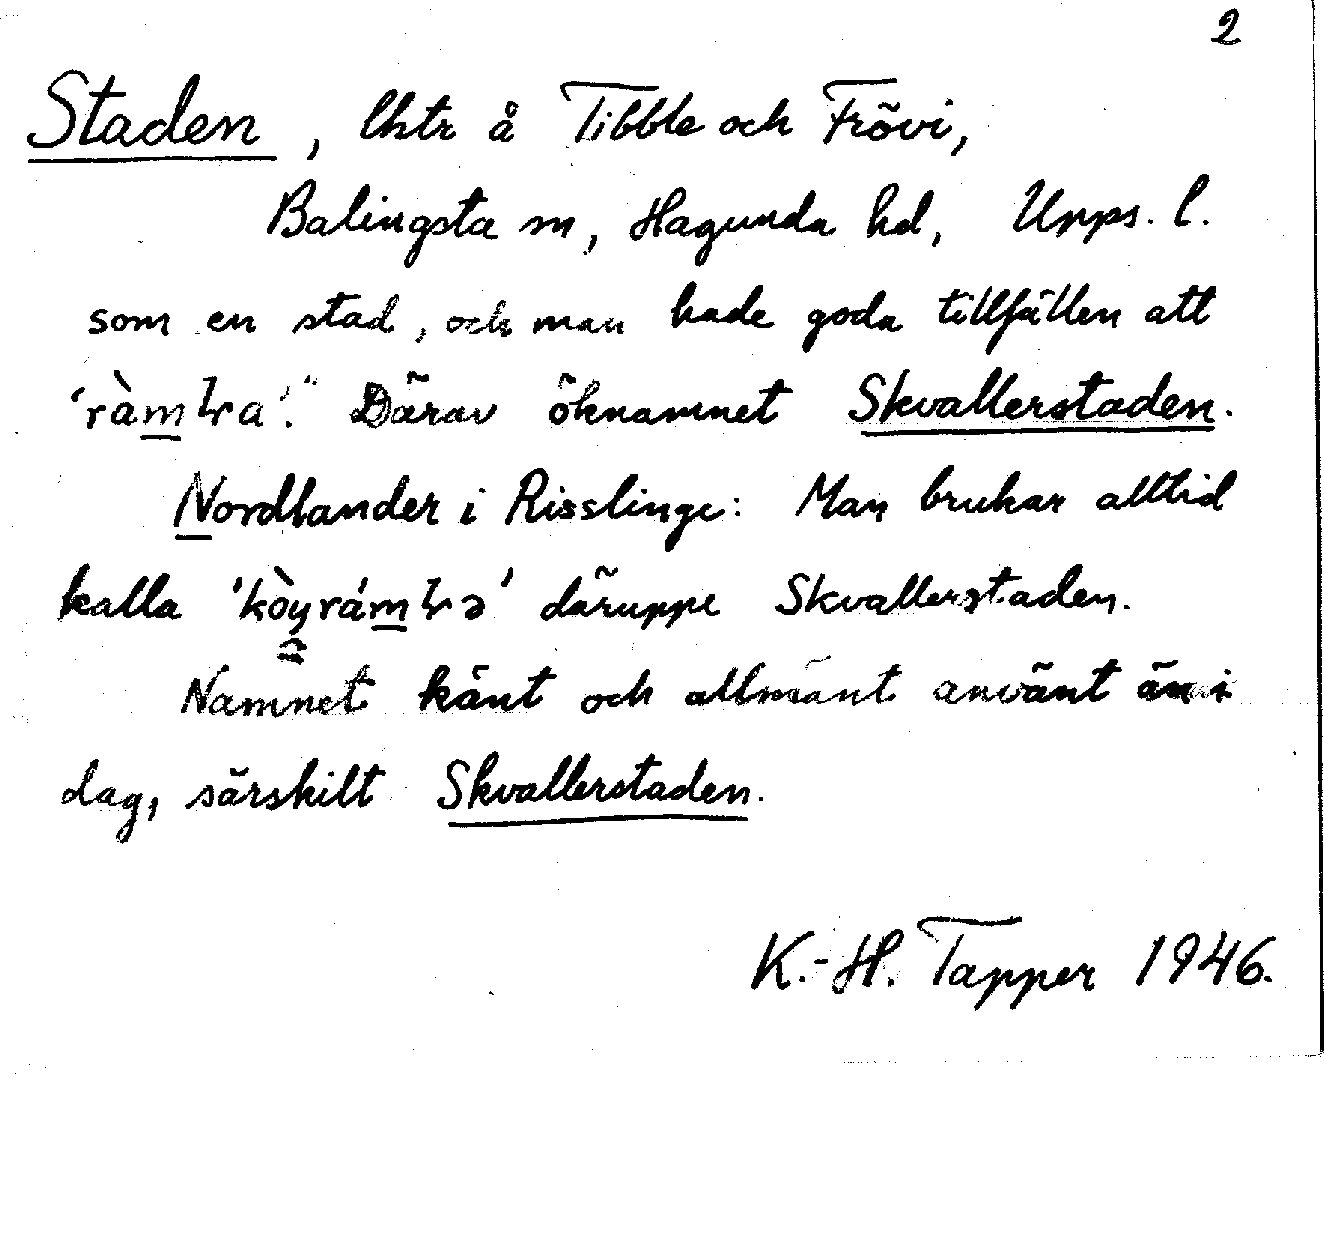 2
Staden, lktr å Tibble och Frövi,
Balingsta sn, Hagunda hd, Upps. l.
som en stad, och man hade goda tillfällen att
'ràmɫra'." Därav öknamnet Skvallerstaden.
Nordlander i Risslinge: Man brukar alltid
kalla däruppe Skvallerstaden.
Namnet känt och allmänt använt än i
dag, särskilt Skvallerstaden.
K.-H. Tapper 1946.